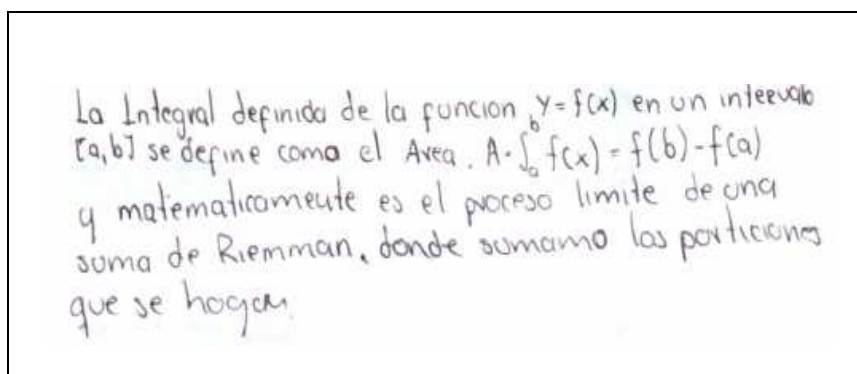 La Integral definida de la funcion y=f(x) en un intervalo
[a,b] se define como el Area. A=∫ₐᵇ f(x) = f(b)-f(a)
y matematicamente es el proceso limite de una
suma de Riemman, donde sumamo las particiones
que se hagan.